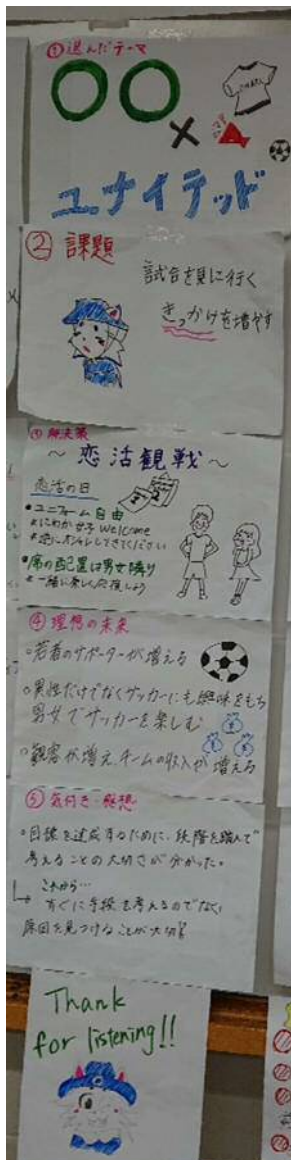 ①選んだテーマ
〇〇
×
ユナイテッド
② 課題
試合を見に行く
きっかけを増やす
③解決策
～恋活観戦～
恋活の日
●ユニフォーム自由
※にわか女子 Welcome
オシャレしてきてください
●席の配置は男女隣り
※一緒に楽しく応援しよう
④理想の未来
○若者のサポーターが増える
○異性だけでなくサッカーにも興味をもち
男女でサッカーを楽しむ
○観客が増え、チームの収入が増える
⑤気付き・感想
○目標を達成するために、段階を踏んで
考えることの大切さが分かった。
これから…
すぐに手段を考えるのでなく、
原因を見つけることが大切!
Thank
for listening!!